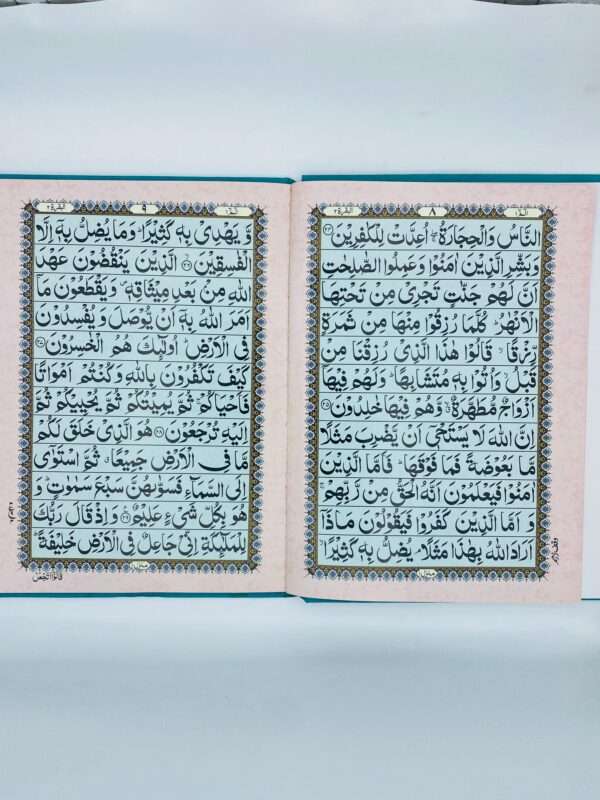 الٓمّٓ ١
٨
البقرة ٢
النَّاسُ وَالْحِجَارَةُ ۚ اُعِدَّتْ لِلْكٰفِرِيْنَ ٢٤
وَبَشِّرِ الَّذِيْنَ اٰمَنُوْا وَعَمِلُوا الصّٰلِحٰتِ
اَنَّ لَهُمْ جَنّٰتٍ تَجْرِيْ مِنْ تَحْتِهَا
الْاَنْهٰرُ ؕ كُلَّمَا رُزِقُوْا مِنْهَا مِنْ ثَمَرَةٍ
رِّزْقًا ۙ قَالُوْا هٰذَا الَّذِيْ رُزِقْنَا مِنْ
قَبْلُ ۙ وَاُتُوْا بِهٖ مُتَشَابِهًا ؕ وَلَهُمْ فِيْهَاۤ
اَزْوَاجٌ مُّطَهَّرَةٌ ۙ وَّهُمْ فِيْهَا خٰلِدُوْنَ ٢٥
اِنَّ اللّٰهَ لَا يَسْتَحْيٖۤ اَنْ يَّضْرِبَ مَثَلًا
مَّا بَعُوْضَةً فَمَا فَوْقَهَا ؕ فَاَمَّا الَّذِيْنَ
اٰمَنُوْا فَيَعْلَمُوْنَ اَنَّهُ الْحَقُّ مِنْ رَّبِّهِمْ ۚ
وَ اَمَّا الَّذِيْنَ كَفَرُوْا فَيَقُوْلُوْنَ مَاذَاۤ
اَرَادَ اللّٰهُ بِهٰذَا مَثَلًا ۘ يُضِلُّ بِهٖ كَثِيْرًا ۙ
وقف لازم
منزل ١
الٓمّٓ ١
٩
البقرة ٢
وَّ يَهْدِيْ بِهٖ كَثِيْرًا ؕ وَمَا يُضِلُّ بِهٖۤ اِلَّا
الْفٰسِقِيْنَ ٢٦ الَّذِيْنَ يَنْقُضُوْنَ عَهْدَ
اللّٰهِ مِنْۢ بَعْدِ مِيْثَاقِهٖ ۪ وَيَقْطَعُوْنَ مَاۤ
اَمَرَ اللّٰهُ بِهٖۤ اَنْ يُّوْصَلَ وَ يُفْسِدُوْنَ
فِي الْاَرْضِ ؕ اُولٰٓئِكَ هُمُ الْخٰسِرُوْنَ ٢٧
كَيْفَ تَكْفُرُوْنَ بِاللّٰهِ وَكُنْتُمْ اَمْوَاتًا
فَاَحْيَاكُمْ ۚ ثُمَّ يُمِيْتُكُمْ ثُمَّ يُحْيِيْكُمْ ثُمَّ
اِلَيْهِ تُرْجَعُوْنَ ٢٨ هُوَ الَّذِيْ خَلَقَ لَكُمْ
مَّا فِي الْاَرْضِ جَمِيْعًا ۗ ثُمَّ اسْتَوٰۤى
اِلَى السَّمَآءِ فَسَوّٰىهُنَّ سَبْعَ سَمٰوٰتٍ ؕ وَ
هُوَ بِكُلِّ شَيْءٍ عَلِيْمٌ ٢٩ وَاِذْ قَالَ رَبُّكَ
لِلْمَلٰٓئِكَةِ اِنِّيْ جَاعِلٌ فِي الْاَرْضِ خَلِيْفَةً ؕ
منزل ١
قَالُوْۤا اَتَجْعَلُ